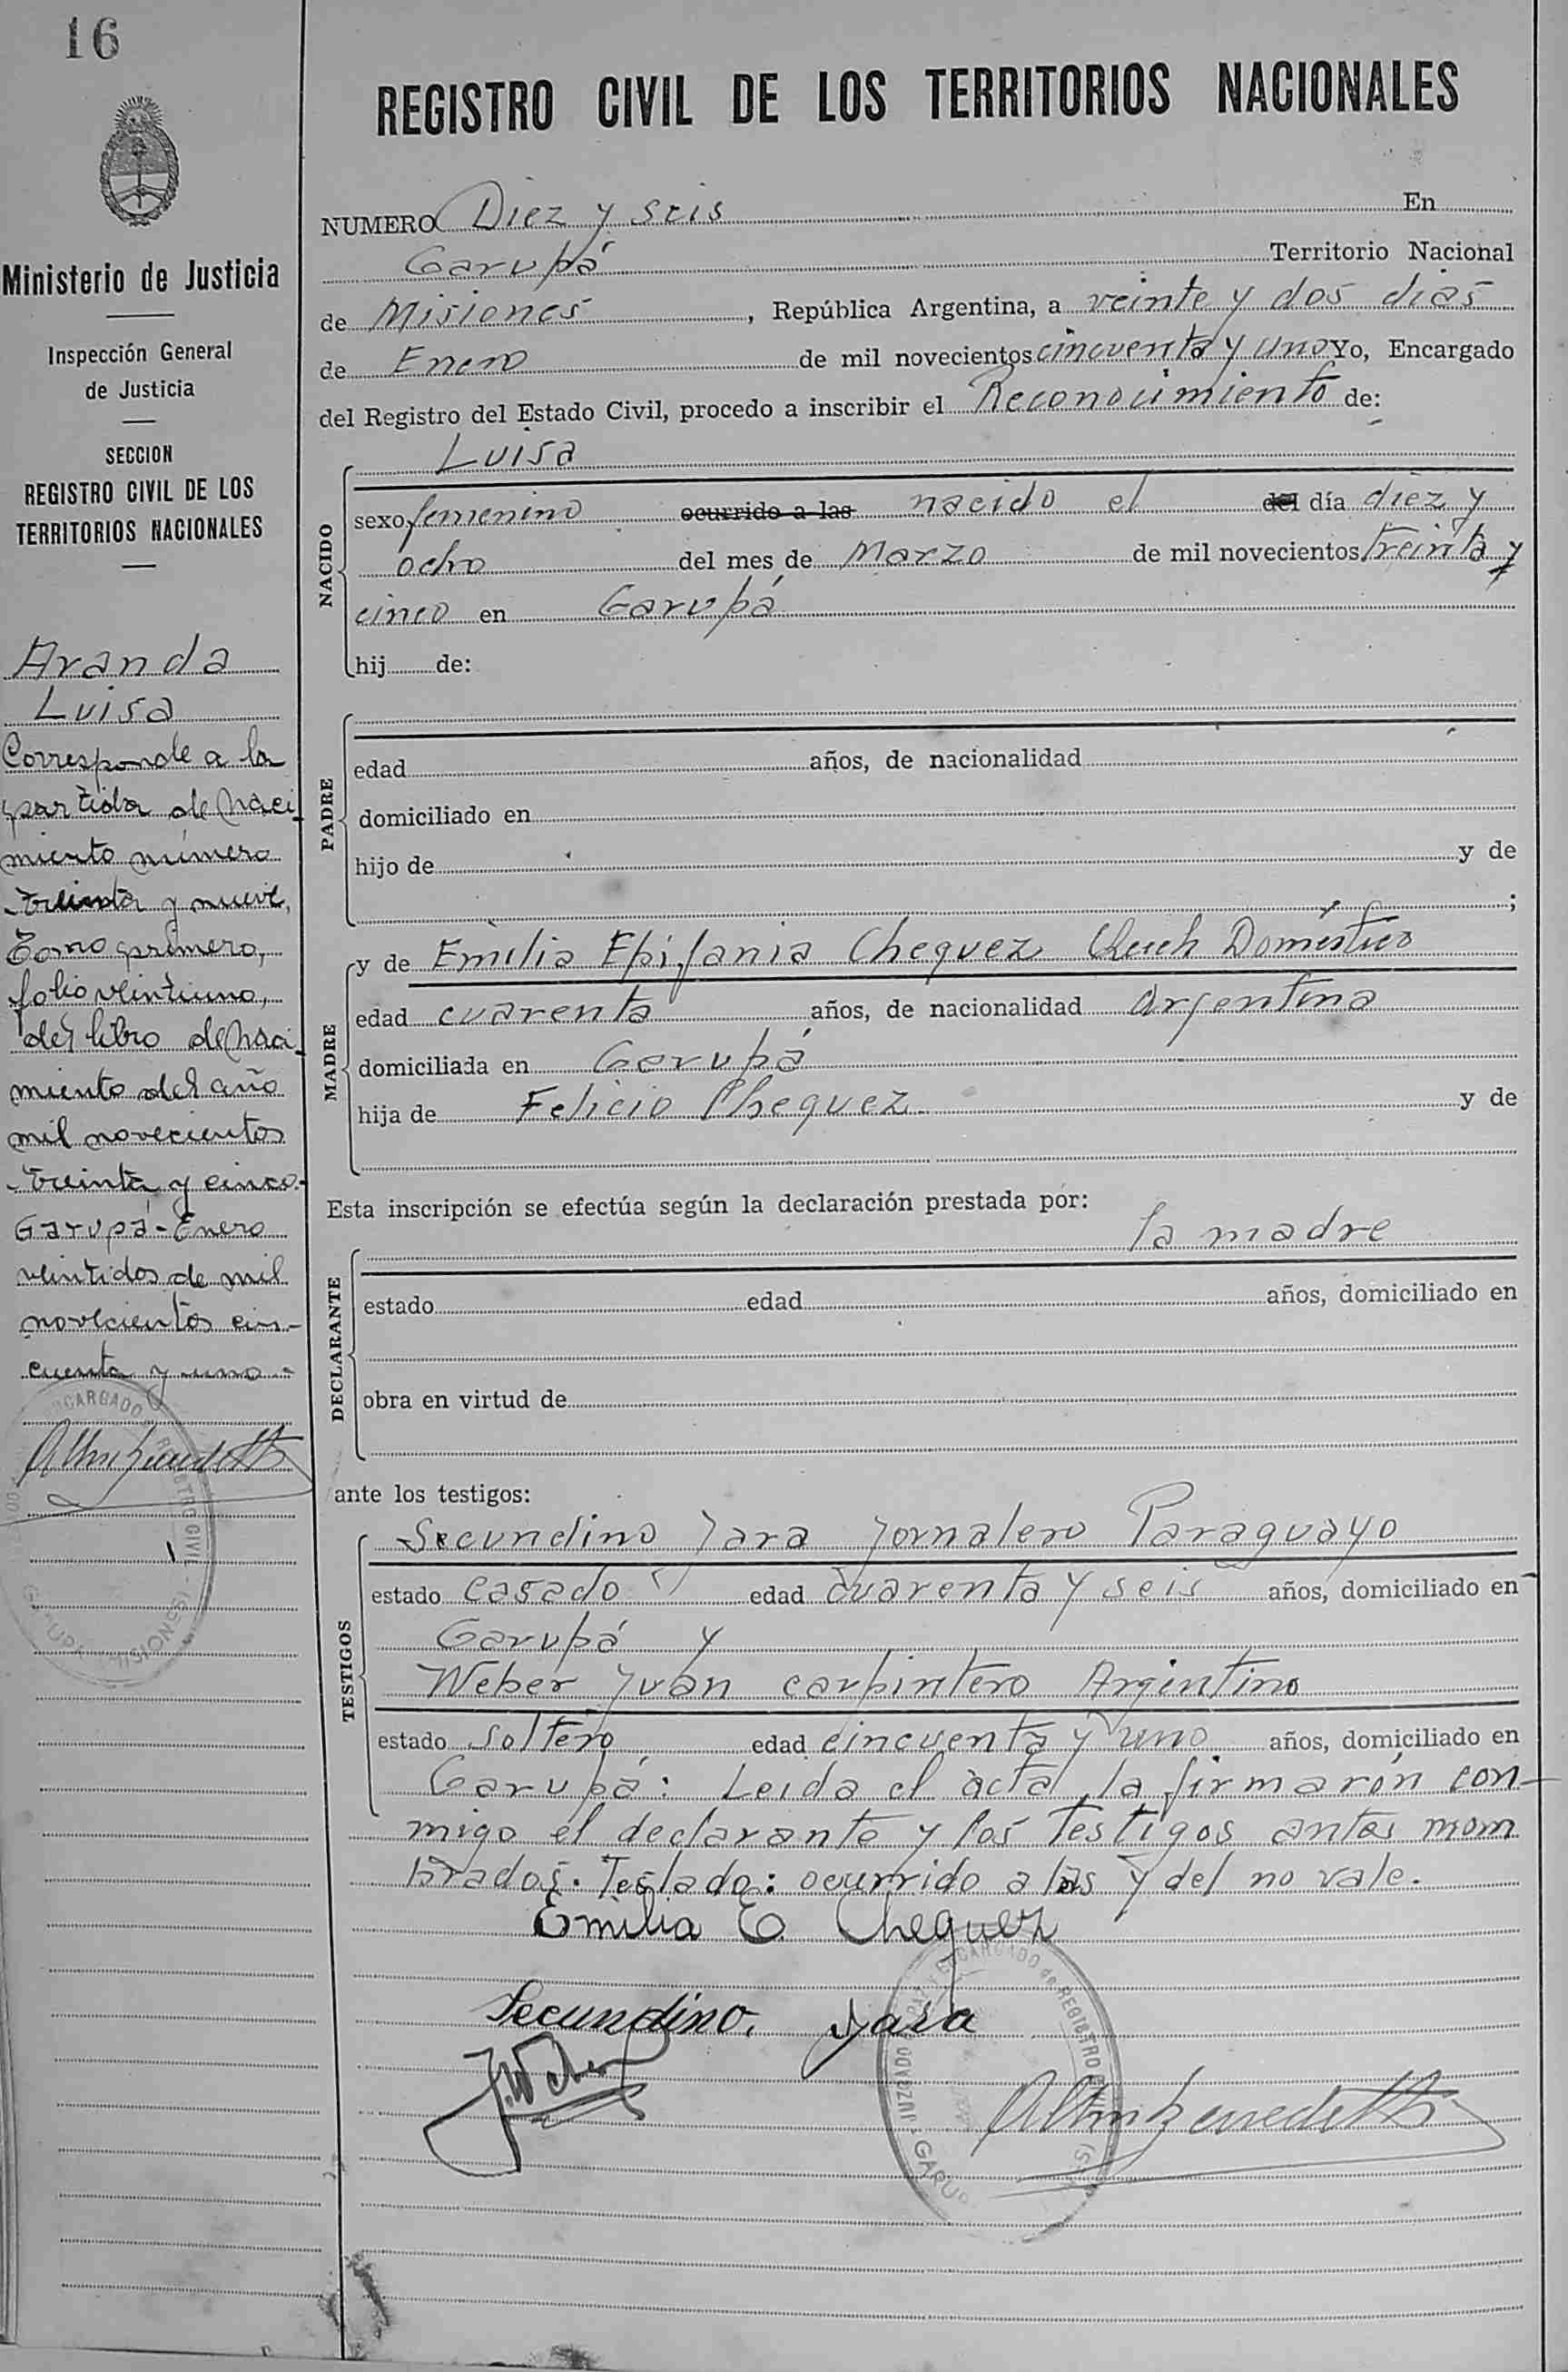 16
Ministerio de Justicia
Inspección General
de Justicia
SECCION
REGISTRO CIVIL DE LOS
TERRITORIOS NACIONALES
Aranda
Luisa
Corresponde a la
partida de naci
miento número
treinta y nueve,
Tomo primero,
folio veintiuno,
del libro de naci
miento del año
mil novecientos
treinta y cinco.-
Garupá-Enero
veintidos de mil
novecientos cin-
cuenta y uno.-
REGISTRO CIVIL DE LOS TERRITORIOS NACIONALES
NUMERO Diez y seis En
Garupá Territorio Nacional
de Misiones, República Argentina, a veinte y dos dias
de Enero de mil novecientos cincuenta y uno Yo, Encargado
del Registro del Estado Civil, procedo a inscribir el Reconocimiento de:
NACIDO
Luisa
sexo femenino ocurrido a las nacido el del día diez y
ocho del mes de Marzo de mil novecientos treinta y
cinco en Garupá
hij de:
PADRE
edad años, de nacionalidad
domiciliado en
hijo de y de
;
MADRE
y de Emilia Epifania Chequez Doméstico
edad cuarenta años, de nacionalidad Argentina
domiciliada en Garupá
hija de Felicio Chequez y de
Esta inscripción se efectúa según la declaración prestada por:
DECLARANTE
la madre
estado edad años, domiciliado en
obra en virtud de
ante los testigos:
TESTIGOS
Secundino Jara Jornalero Paraguayo
estado casado edad cuarenta y seis años, domiciliado en
Garupá y
Weber Juan carpintero Argentino
estado soltero edad cincuenta y uno años, domiciliado en
Garupá: Leida el acta la firmarón con-
migo el declarante y los testigos antes nom
brados. Teslado: ocurrido a las y del no vale.
Emilia E. Chequez
Secundino. Jara
J. Weber